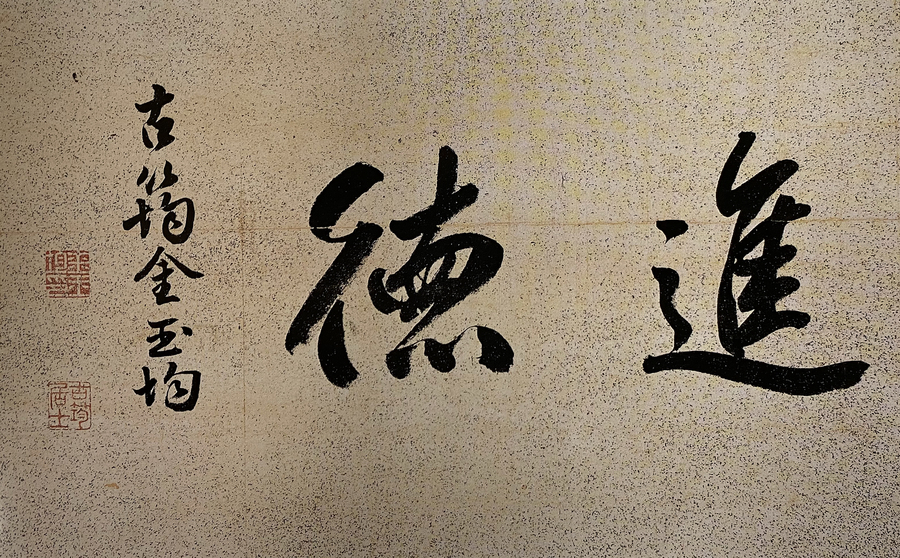 進德
古筠金玉均
古筠居士